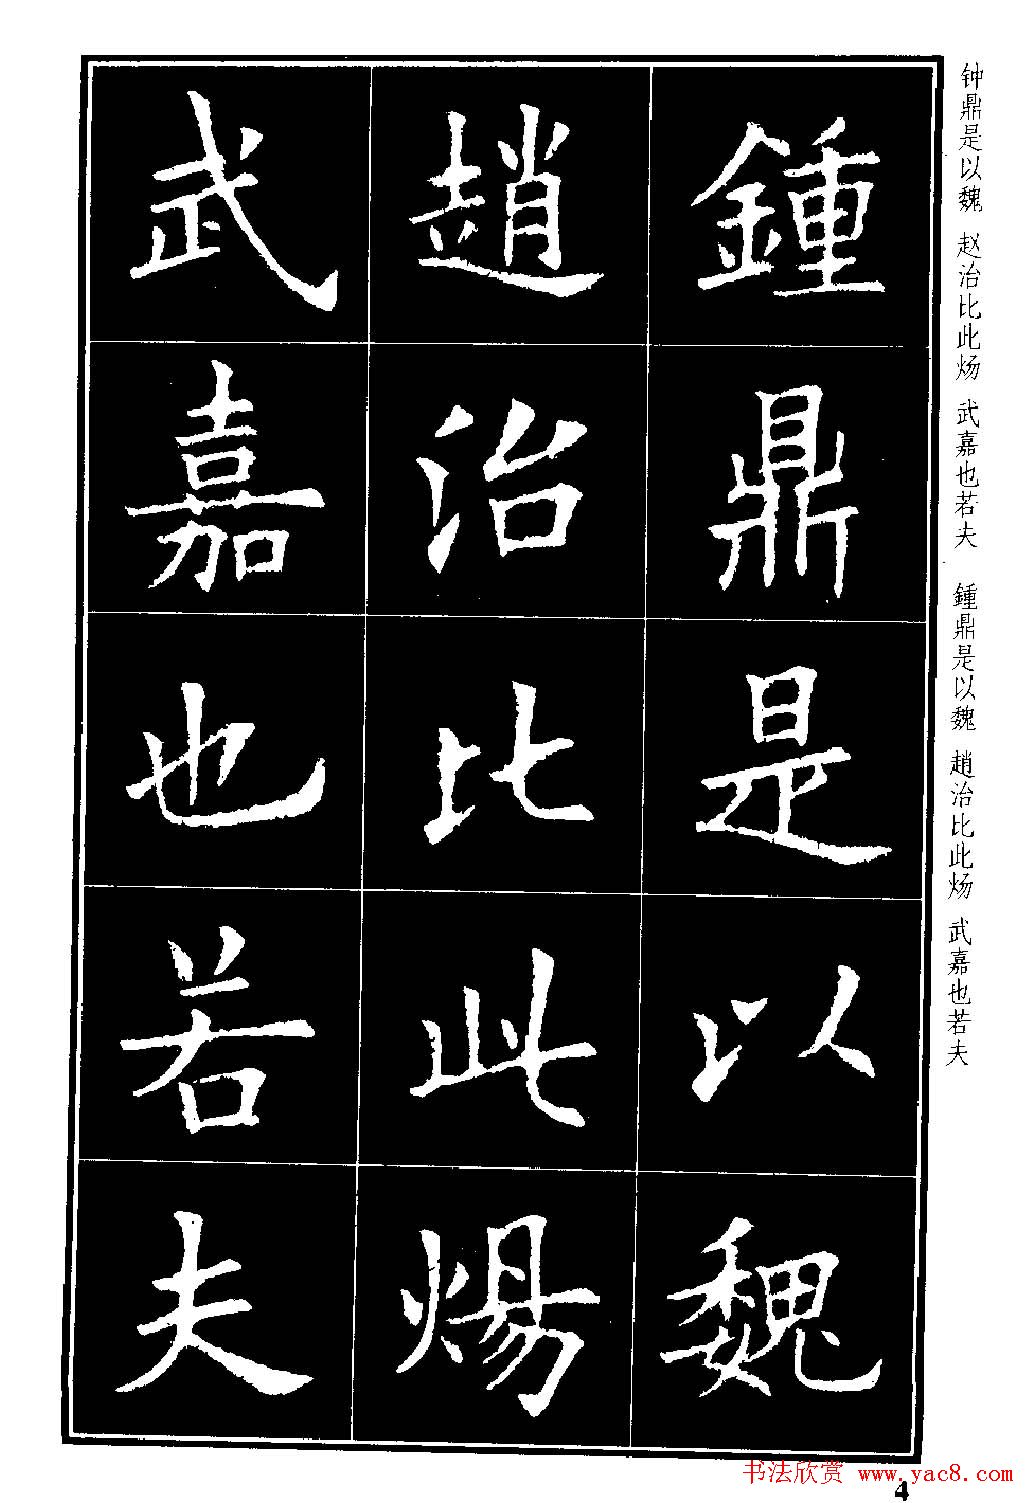 鍾鼎是以魏
趙治比此煬
武嘉也若夫
钟鼎是以魏 赵治比此炀 武嘉也若夫 鍾鼎是以魏 趙治比此煬 武嘉也若夫
书法欣赏 www.yac8.com
4